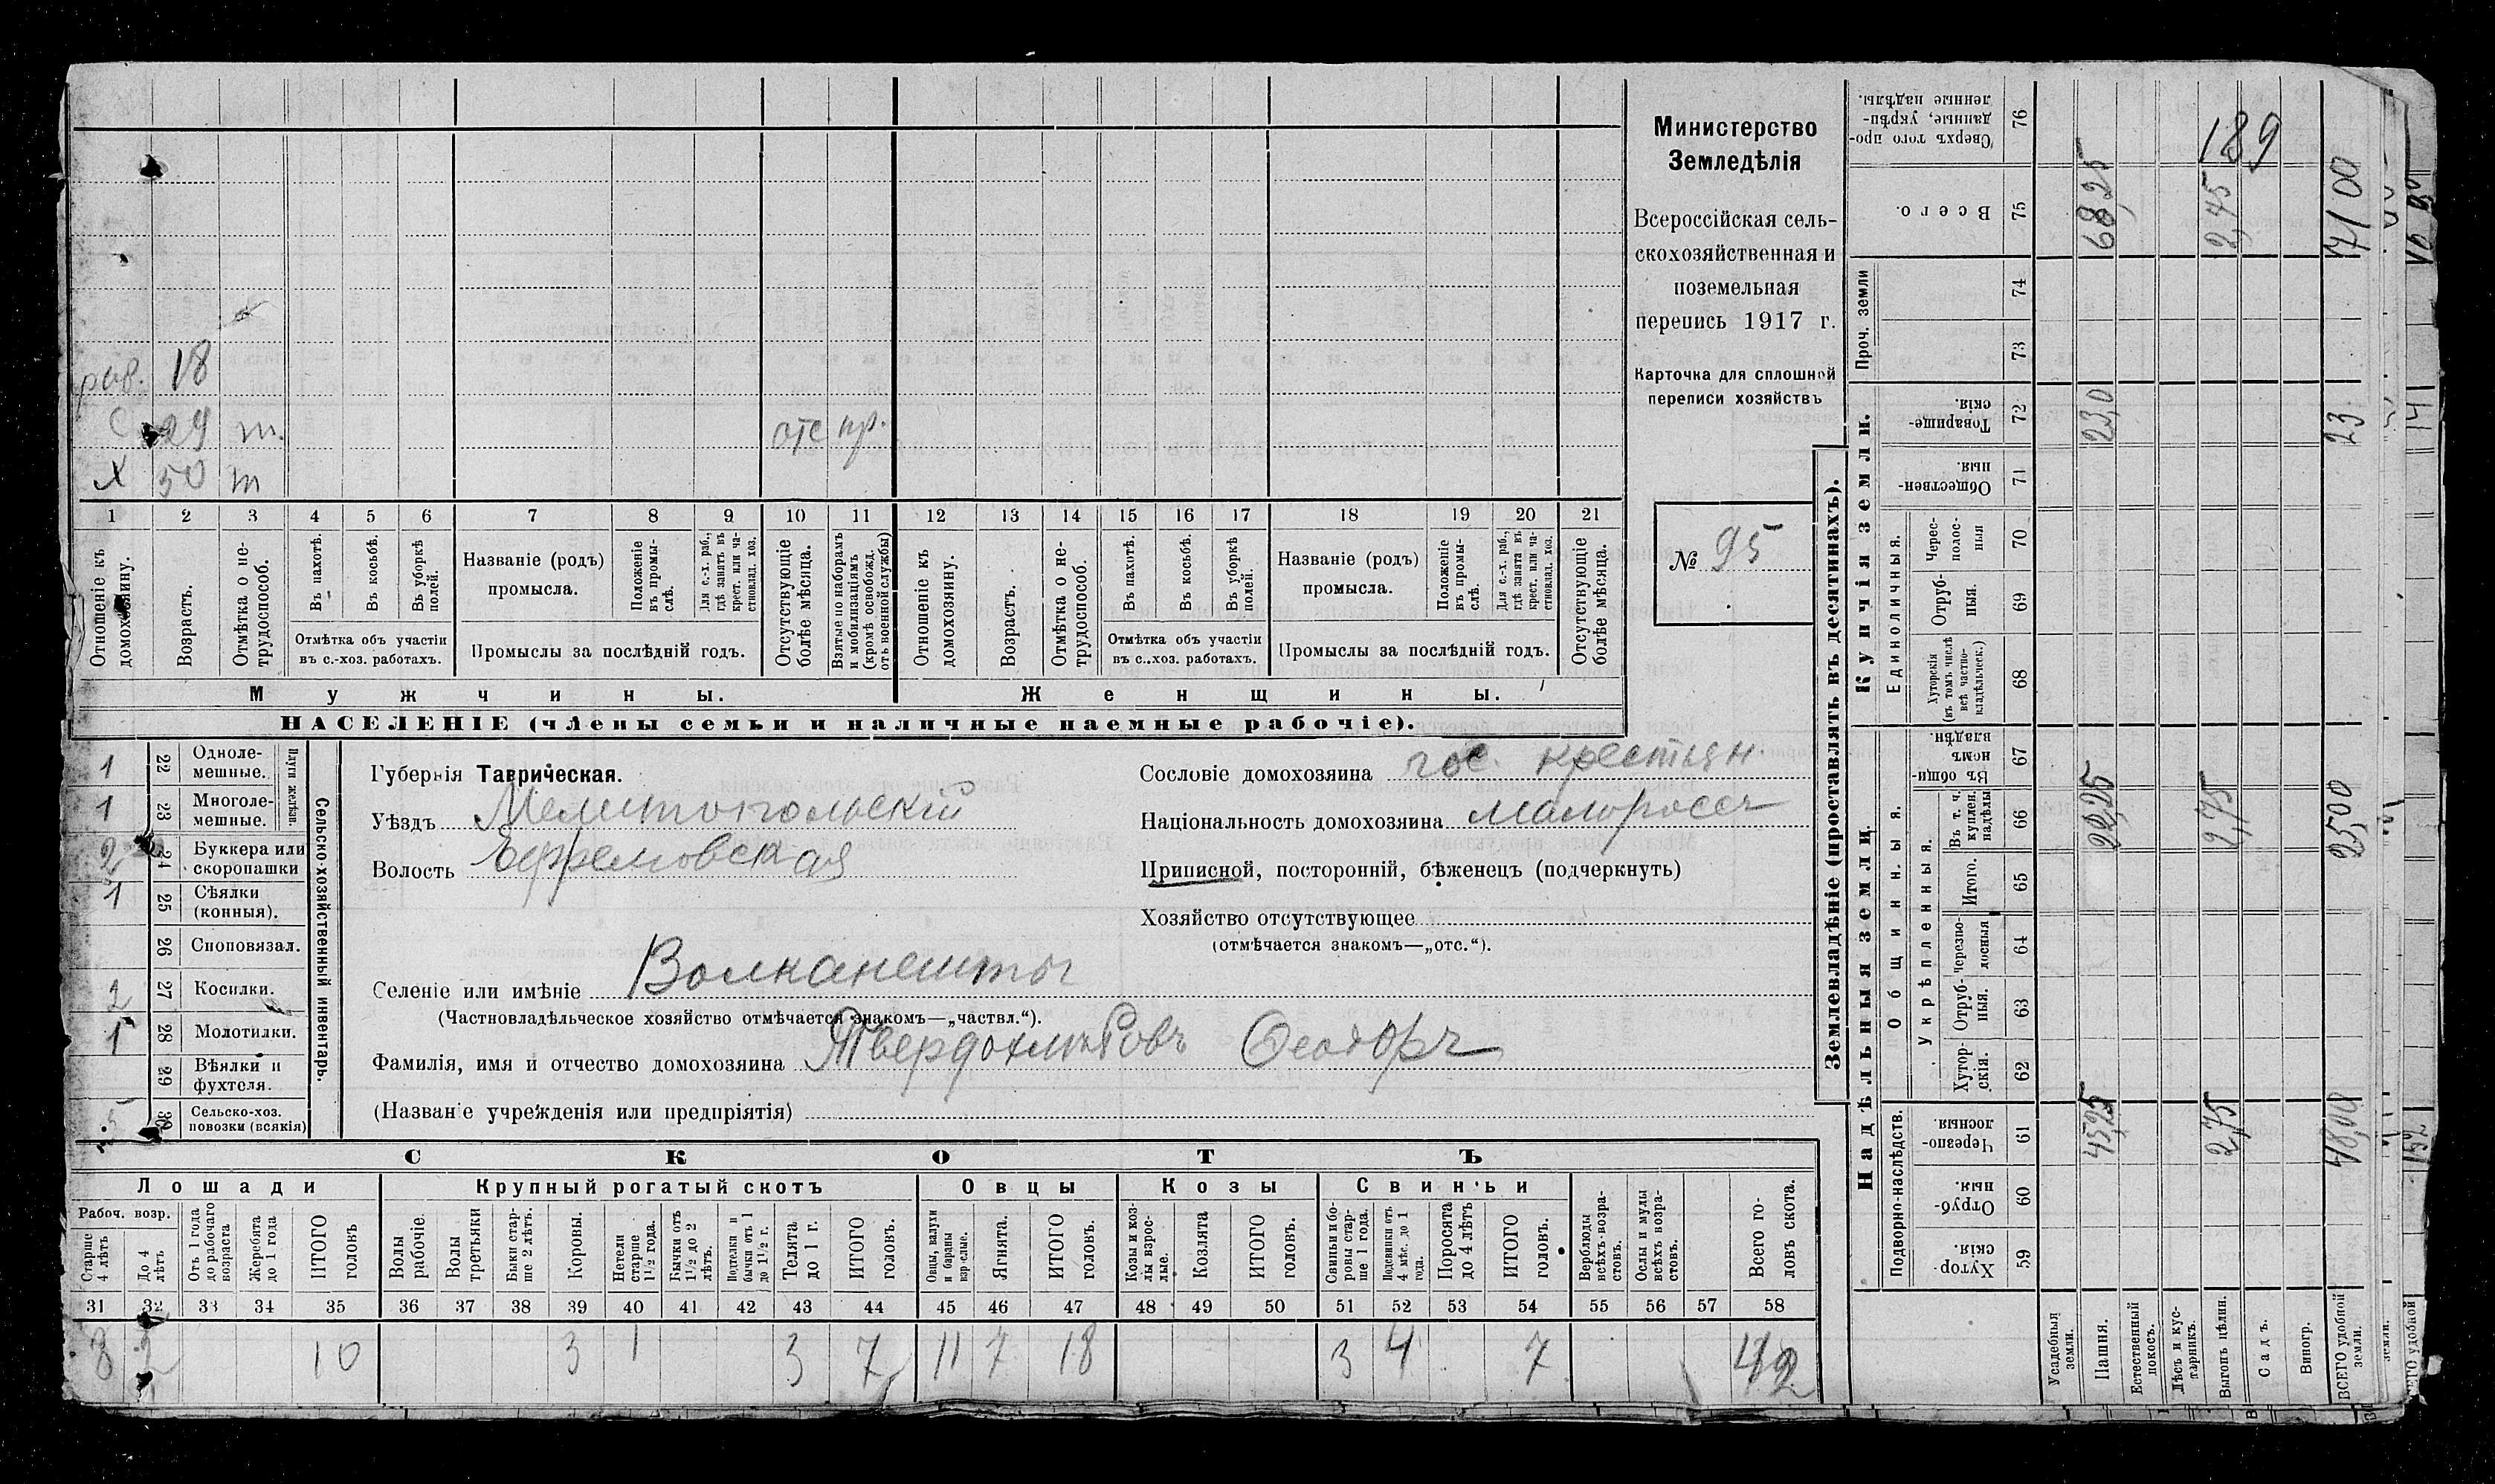 раб. 18
С 29 т. отс пр.
Х 50 т
1 2 3 4 5 6 7 8 9 10 11 12 13 14 15 16 17 18 19 20 21
Отношеніе къ домохозяину.
Возрастъ.
Отмѣтка о не-трудоспособ.
Въ пахотѣ.
Въ косьбѣ.
Въ уборкѣ полей.
Отмѣтка объ участіи въ с.-хоз. работахъ.
Названіе (родъ) промысла.
Положеніе въ промы-слѣ.
Для с.-х. раб., гдѣ занятъ въ крест. или ча-стновлад. хоз.
Промыслы за послѣдній годъ.
Отсутствующіе болѣе мѣсяца.
Взятые по наборамъ и мобилизаціямъ (кромѣ освобожд. отъ военной службы)
Отношеніе къ домохозяину.
Возрастъ.
Отмѣтка о не-трудоспособ.
Въ пахотѣ.
Въ косьбѣ.
Въ уборкѣ полей.
Отмѣтка объ участіи въ с.-хоз. работахъ.
Названіе (родъ) промысла.
Положеніе въ промы-слѣ.
Для с.-х. раб., гдѣ занята въ крест. или ча-стновлад. хоз.
Промыслы за послѣдній годъ.
Отсутствующіе болѣе мѣсяца.
Мужчины. Женщины.
НАСЕЛЕНІЕ (члены семьи и наличные наемные рабочіе).
Министерство
Земледѣлія
Всероссійская сель-
скохозяйственная и
поземельная
перепись 1917 г.
Карточка для сплошной
переписи хозяйствъ
№ 95
1 22 Одноле-мешные.
1 23 Многоле-мешные.
Плуги желѣзн.
2 24 Буккера или скоропашки
1 25 Сѣялки (конныя).
26 Сноповязал.
2 27 Косилки.
1 28 Молотилки.
29 Вѣялки и фухтеля.
5 30 Сельско-хоз. повозки (всякія)
Сельско-хозяйственный инвентарь.
Губернія Таврическая.
Уѣздъ Мелитопольскій
Волость Ефремовская
Сословіе домохозяина гос. крестьян.
Національность домохозяина малороссъ
Приписной, посторонній, бѣженецъ (подчеркнуть)
Хозяйство отсутствующее
(отмѣчается знакомъ—„отс.“).
Селеніе или имѣніе Волканешты
(Частновладѣльческое хозяйство отмѣчается знакомъ—„частвл.“).
Фамилія, имя и отчество домохозяина Твердохлѣбовъ Феодоръ
(Названіе учрежденія или предпріятія)
СКОТЪ
Лошади Крупный рогатый скотъ Овцы Козы Свиньи
Рабоч. возр.
Старше 4 лѣтъ
До 4 лѣтъ
Отъ 1 года до рабочаго возраста
Жеребята до 1 года
ИТОГО головъ
Волы рабочіе.
Волы третьяки
Быки стар-ше 2 лѣтъ.
Коровы.
Нетели старше 1½ года.
Бычки отъ 1½ до 2 лѣтъ.
Подтелки и бычки отъ 1 до 1½ г.
Телята до 1 г.
ИТОГО головъ.
Овцы, валухи и бараны взрослые.
Ягнята.
ИТОГО головъ.
Козы и коз-лы взрос-лые.
Козлята
ИТОГО головъ.
Свиньи и бо-ровы стар-ше 1 года.
Подсвинки отъ 4 мѣс. до 1 года.
Поросята до 4 лѣтъ
ИТОГО головъ.
Верблюды всѣхъ возра-стовъ.
Ослы и мулы всѣхъ возра-стовъ.
Всего го-ловъ скота.
31 32 33 34 35 36 37 38 39 40 41 42 43 44 45 46 47 48 49 50 51 52 53 54 55 56 57 58
8 2 10 3 1 3 7 11 7 18 3 4 7 42
Землевладѣніе (проставлять въ десятинахъ).
Купчія земли.
Надѣльныя земли.
Сверхъ того про-данные, укрѣп-ленные надѣлы. 76
Всего. 75
Проч. земли 74 73
Товарище-скія. 72
Обществен-ныя. 71
Единоличныя.
Черес-полос-ныя 70
Отруб-ныя. 69
Хуторскія (въ томъ числѣ всѣ частно-владѣльческ.) 68
Общинныя.
Въ общи-номъ владѣн. 67
Укрѣпленныя.
Въ т. ч. куплен. надѣлы 66
Итого. 65
Черезпо-лосныя 64
Отруб-ныя. 63
Хутор-скія. 62
Подворно-наслѣдств.
Черезпо-лосныя. 61
Отруб-ныя. 60
Хутор-скія. 59
Усадебныя земли.
Пашня. 45,25 22,25 23,0 68,25
Естественный покосъ.
Лѣсъ и кус-тарникъ.
Выгонъ цѣлин. 2,75 2,75 2,45
Садъ.
Виногр.
ВСЕГО удобной земли. 48,00 25,00 23 71 00
189